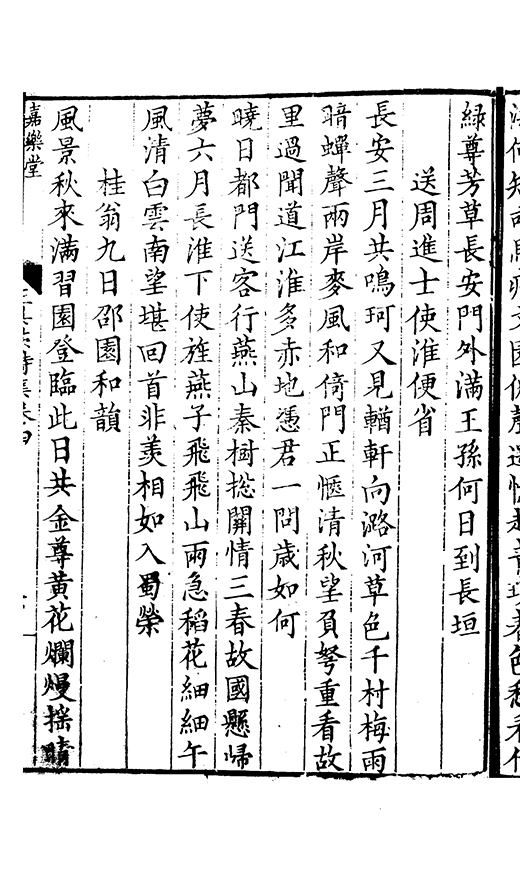 綠尊芳草長安門外滿王孫何日到長垣
送周進士使淮便省
長安三月共鳴珂又見輶軒向潞河草色千村梅雨
暗蟬聲兩岸麥風和倚門正愜清秋望負弩重看故
里過聞道江淮多赤地憑君一問歲如何
曉日都門送客行燕山秦樹揔關情三春故國懸歸
夢六月長淮下使旌燕子飛飛山雨急稻花細細午
風清白雲南望堪回首非羙相如入蜀榮
桂翁九日邵園和韻
風景秋來滿習園登臨此日共金尊黃花爛熳揺晴
嘉樂堂
詩集卷四